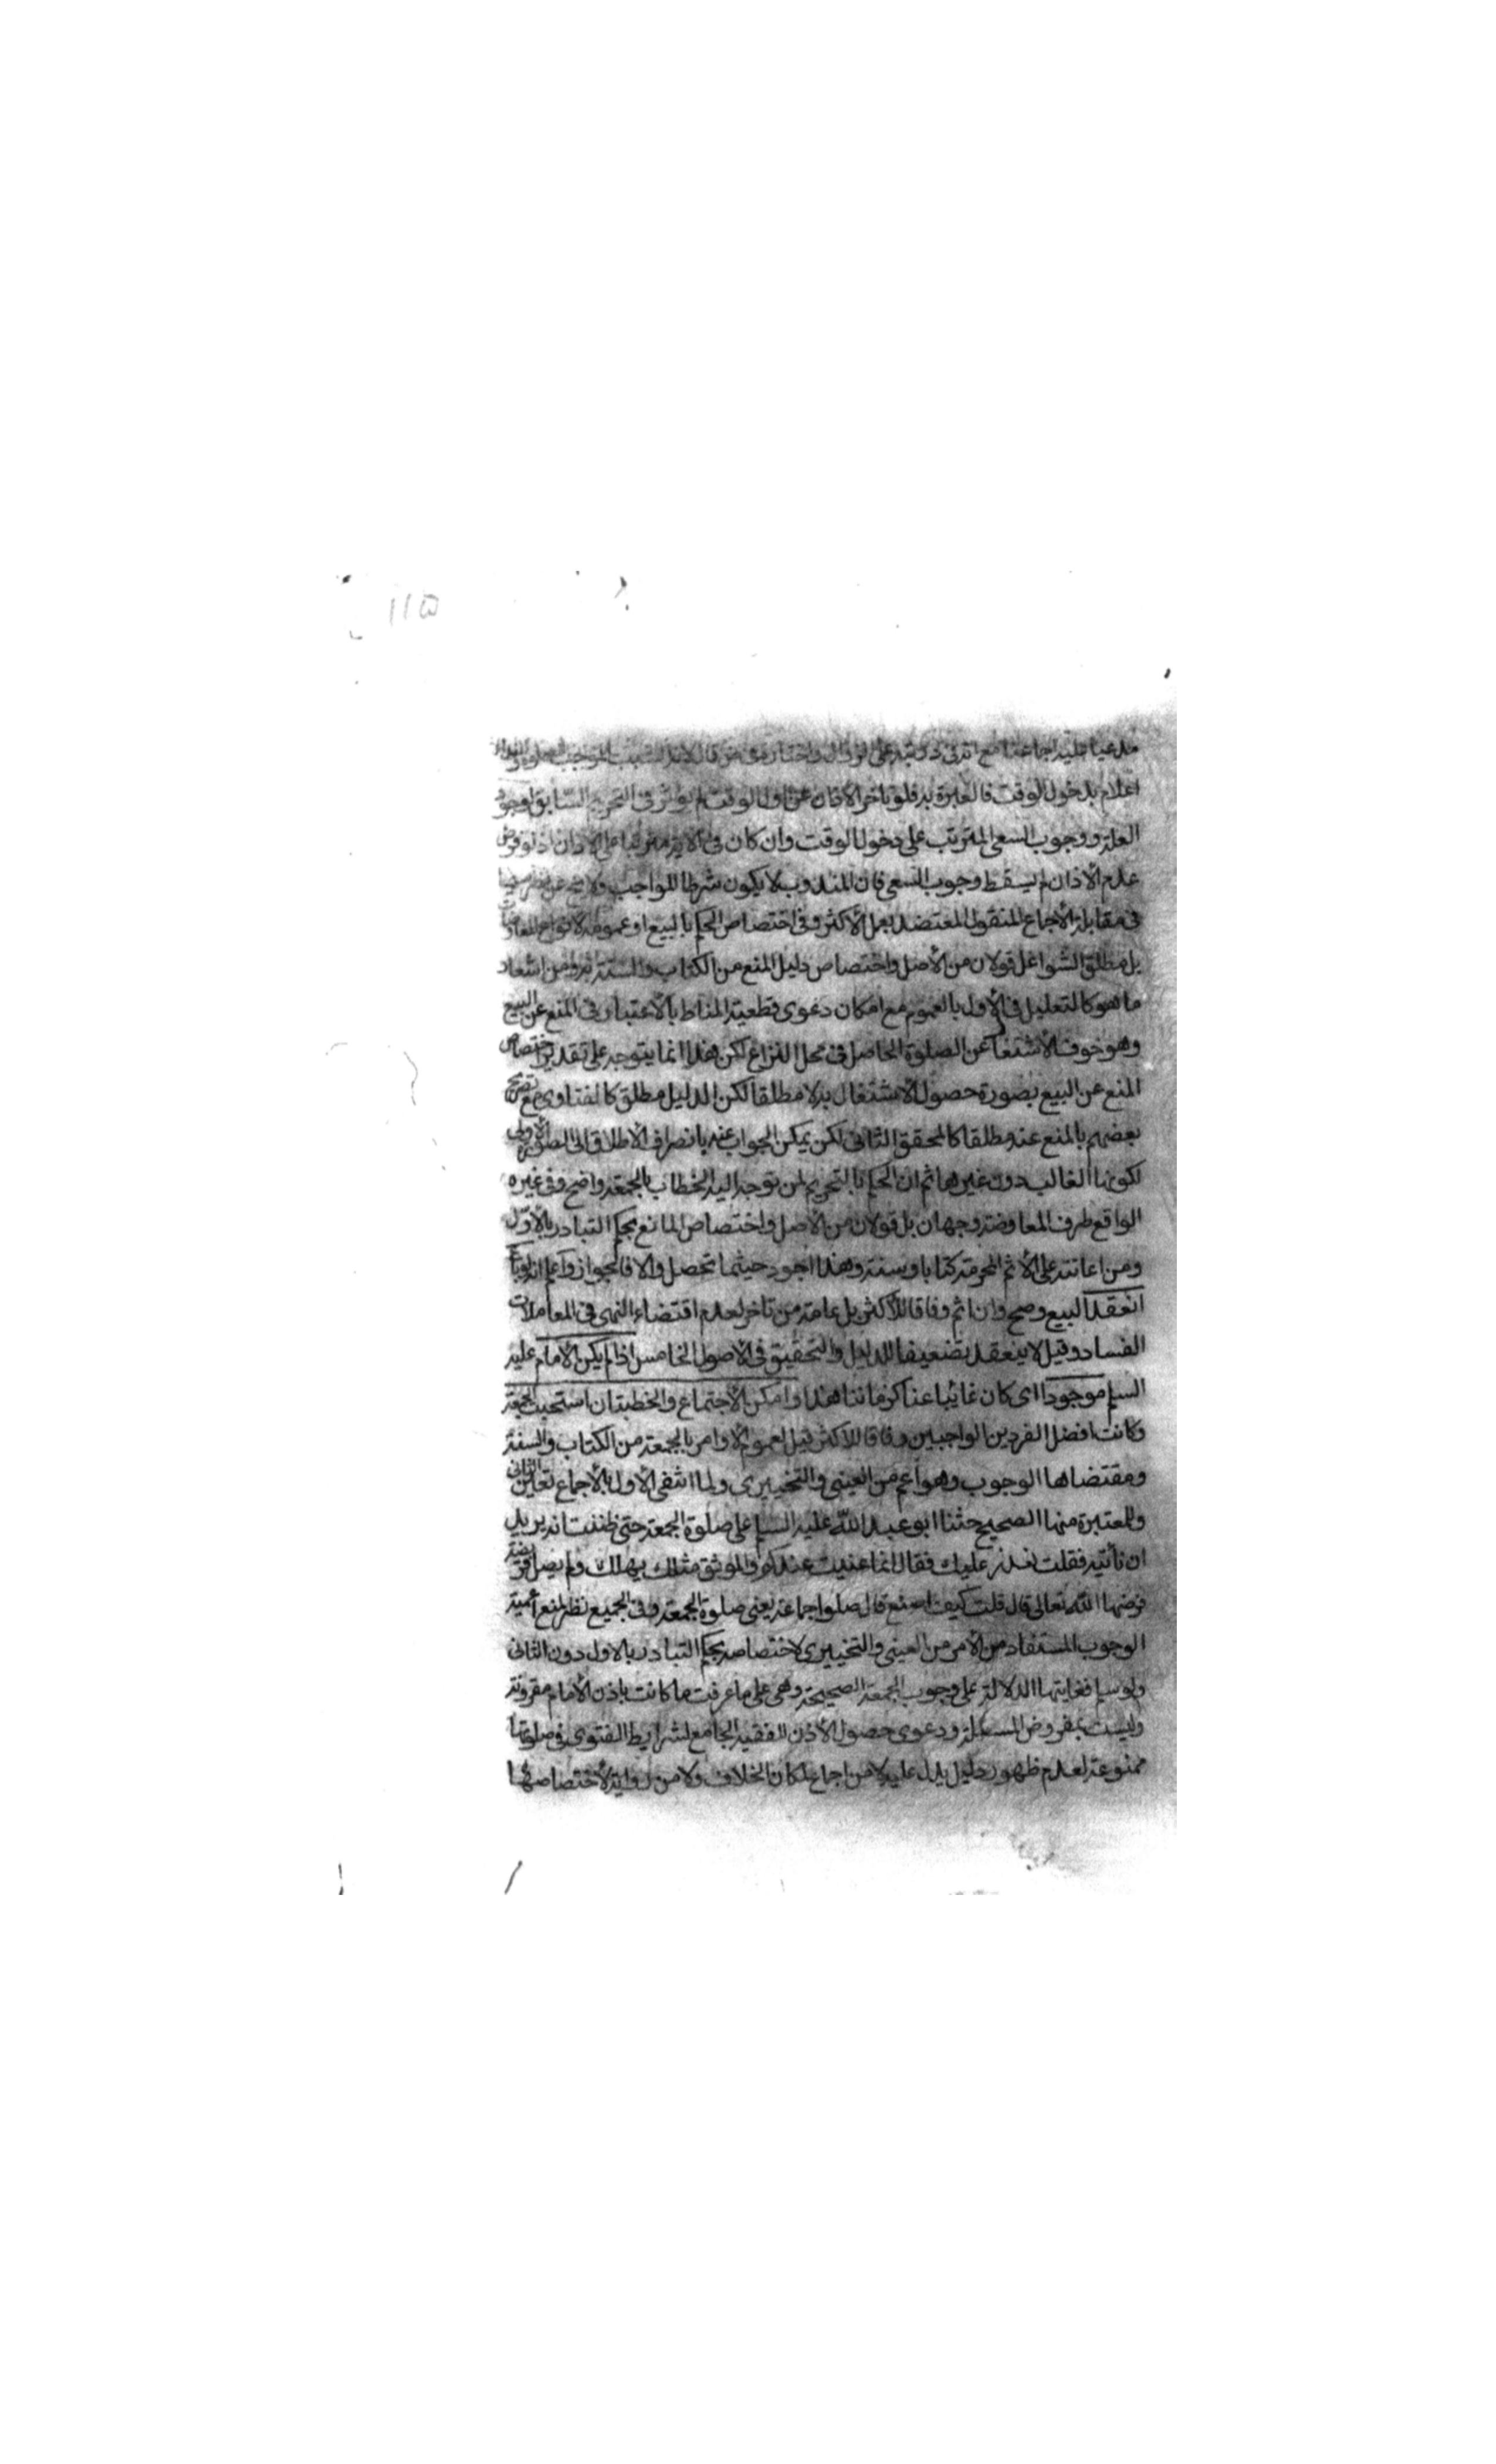 ١١٥
مدعيا عليه اجماعنا مع
اعلام بدخول الوقت فالعبرة به فلو تأخر الاذان عن اول الوقت لم يؤثر في التحريم السابق لوجود
العلة ووجوب السعي المترتب على دخول الوقت وان كان في الاية مترتبا على الاذان اذ لو فرض
عدم الاذان لم يسقط وجوب السعي فان المندوب لا يكون شرطا للواجب ولا يخ عن نظر سيما
في مقابلة الاجماع المنقول المعتضد بعمل الاكثر وفي اختصاص الحكم بالبيع او عمومه لانواع المعاوضات
بل مطلق الشواغل قولان من الاصل واختصاص دليل المنع من الكتاب والسنة به ومن اشعار
ما هو كالتعليل في الاول بالعموم مع امكان دعوى قطعية المناط بالاعتبار في المنع عن البيع
وهو خوف الاشتغال عن الصلوة الحاصل في محل النزاع لكن هذا انما يتوجه على تقدير اختصاص
المنع عن البيع بصورة حصول الاشتغال به لا مطلقا لكن الدليل مطلق كالفتاوى مع تصريح
بعضهم بالمنع عنه مطلقا كالمحقق الثاني لكن يمكن الجواب عنه بانصراف الاطلاق الى الصورة الاولى
لكونها الغالب دون غيرها ثم ان الحكم بالتحريم لمن توجه اليه الخطاب بالجمعة واضح وفي غيره
الواقع طرف المعاوضة وجهان بل قولان من الاصل واختصاص المانع بحكم التبادر بالاول
ومن اعانته على الاثم المحرمة كتابا وسنة وهذا اجود حيثما تحصل والا فالجواز واعلم انه لو باع
انعقد البيع وصح وان اثم وفاقا للاكثر بل عامة من تاخر لعدم اقتضاء النهي في المعاملات
الفساد وقيل لا ينعقد تضعيفا للدليل والتحقيق في الاصول الخامس اذا لم يكن الامام عليه
السلم موجودا اى كان غائبا عنا كزماننا هذا وامكن الاجتماع والخطبتان استحبت الجمعة
وكانت افضل الفردين الواجبين وفاقا للاكثر قيل لعموم الاوامر بالجمعة من الكتاب والسنة
ومقتضاها الوجوب وهو اعم من العيني والتخييري ولما انتفى الاول بالاجماع تعين الثاني
وللمعتبرة منها الصحيح حثنا ابو عبد الله عليه السلم على صلوة الجمعة حتى ظننت انه يريد
ان نأتيه فقلت نغدو عليك فقال انما عنيت عندكم والموثق مثلك يهلك ولم يصل فريضة
فرضها الله تعالى قال قلت كيف اصنع قال صلوا جماعة يعني صلوة الجمعة وفي الجميع نظر لمنع اعمية
الوجوب المستفاد من الامر من العيني والتخييري لاختصاصه بحكم التبادر بالاول دون الثاني
ولو سلم فغايتها الدلالة على وجوب الجمعة الصحيحة وهي على ما عرفت ما كانت باذن الامام مقرونة
وليست بمفروض المسئلة ودعوى حصول الاذن للفقيه الجامع لشرايط الفتوى في صلوتها
ممنوعة لعدم ظهور دليل يدل عليه لا من اجماع لمكان الخلاف ولا من رواية لاختصاصها